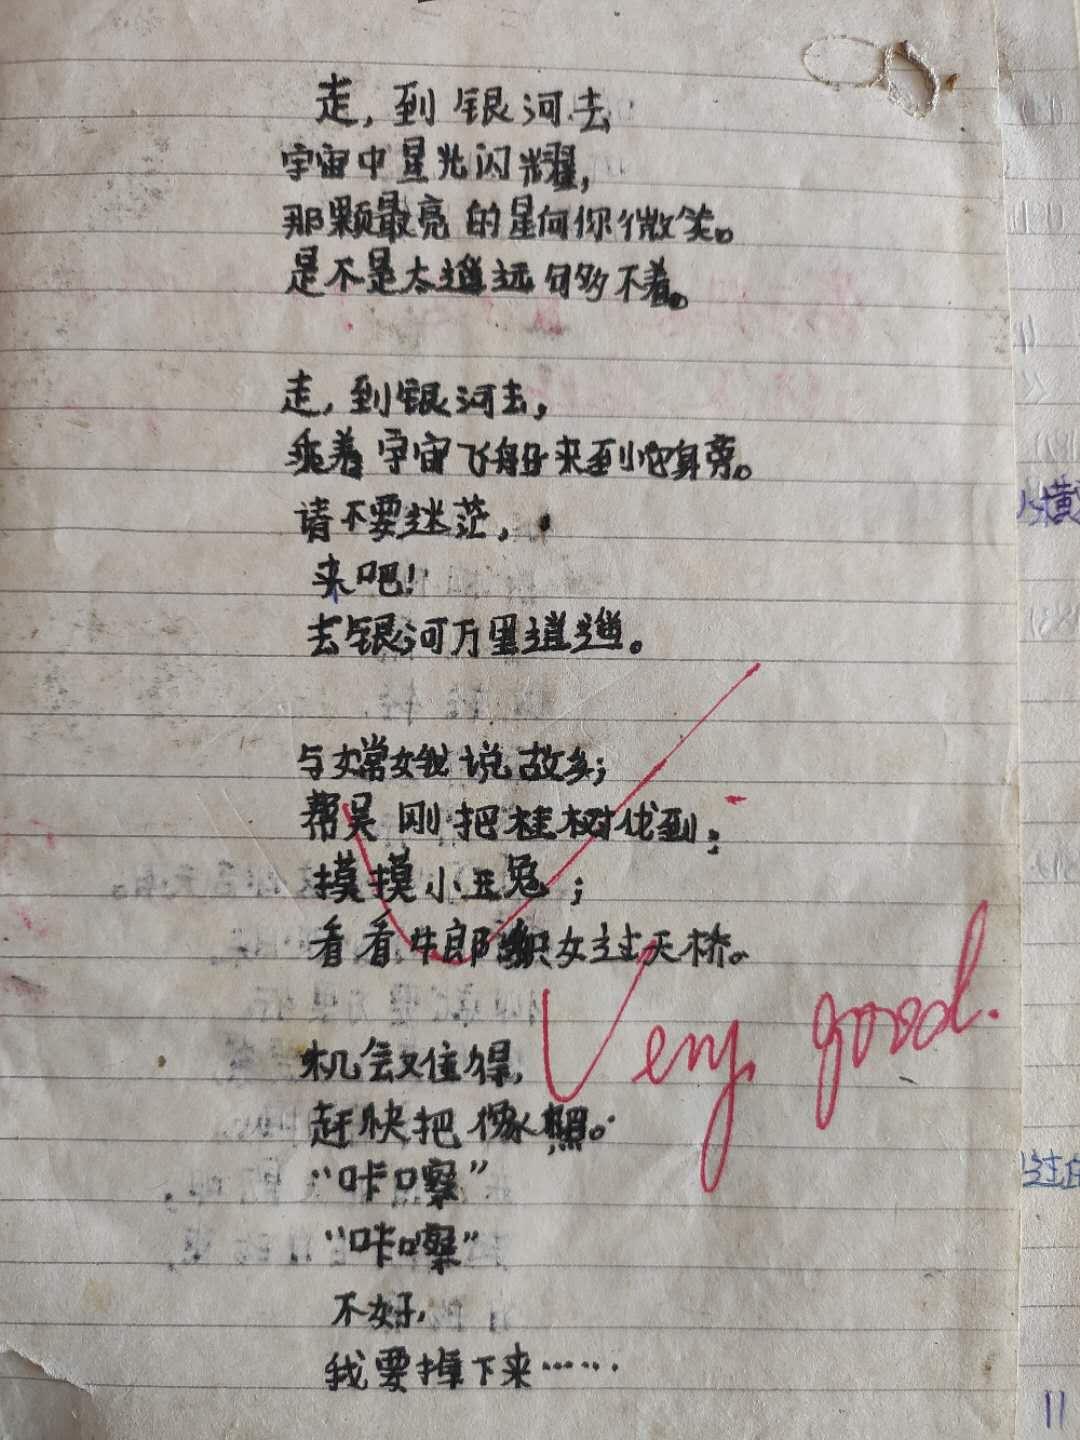 走,到银河去
宇宙中星光闪耀,
那颗最亮的星向你微笑。
是不是太遥远句多不着。
走,到银河去,
乘着宇宙飞船来到它身旁。
请不要迷茫,
来吧!
去银河万里逍遥。
与嫦娥说故乡;
帮吴刚把桂树伐到;
摸摸小玉兔;
看看牛郎织女过天桥。
Very good.
机会难得,
赶快把像照。
“咔嚓”
“咔嚓”
不好,
我要掉下来……
11